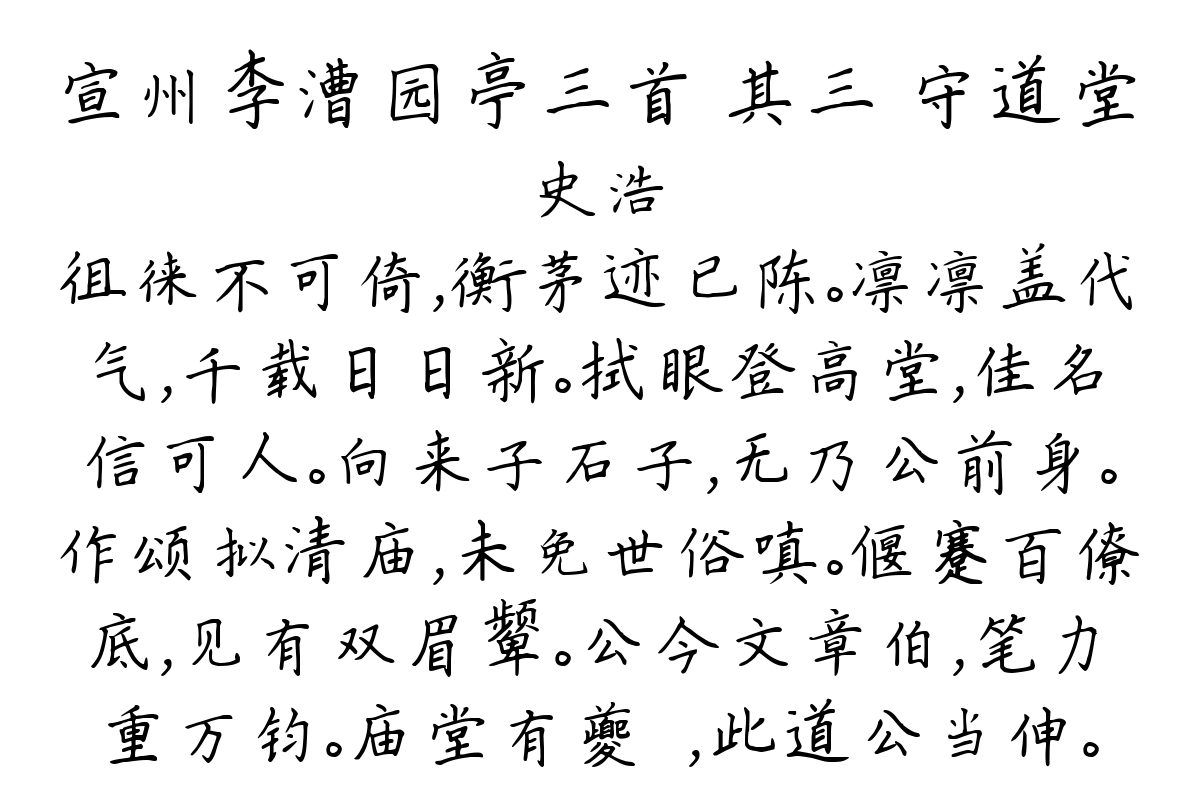 宣州李漕园亭三首 其三 守道堂
史浩
徂徕不可倚,衡茅迹已陈。凛凛盖代
气,千载日日新。拭眼登高堂,佳名
信可人。向来子石子,无乃公前身。
作颂拟清庙,未免世俗嗔。偃蹇百僚
底,见有双眉颦。公今文章伯,笔力
重万钧。庙堂有夔 ,此道公当伸。